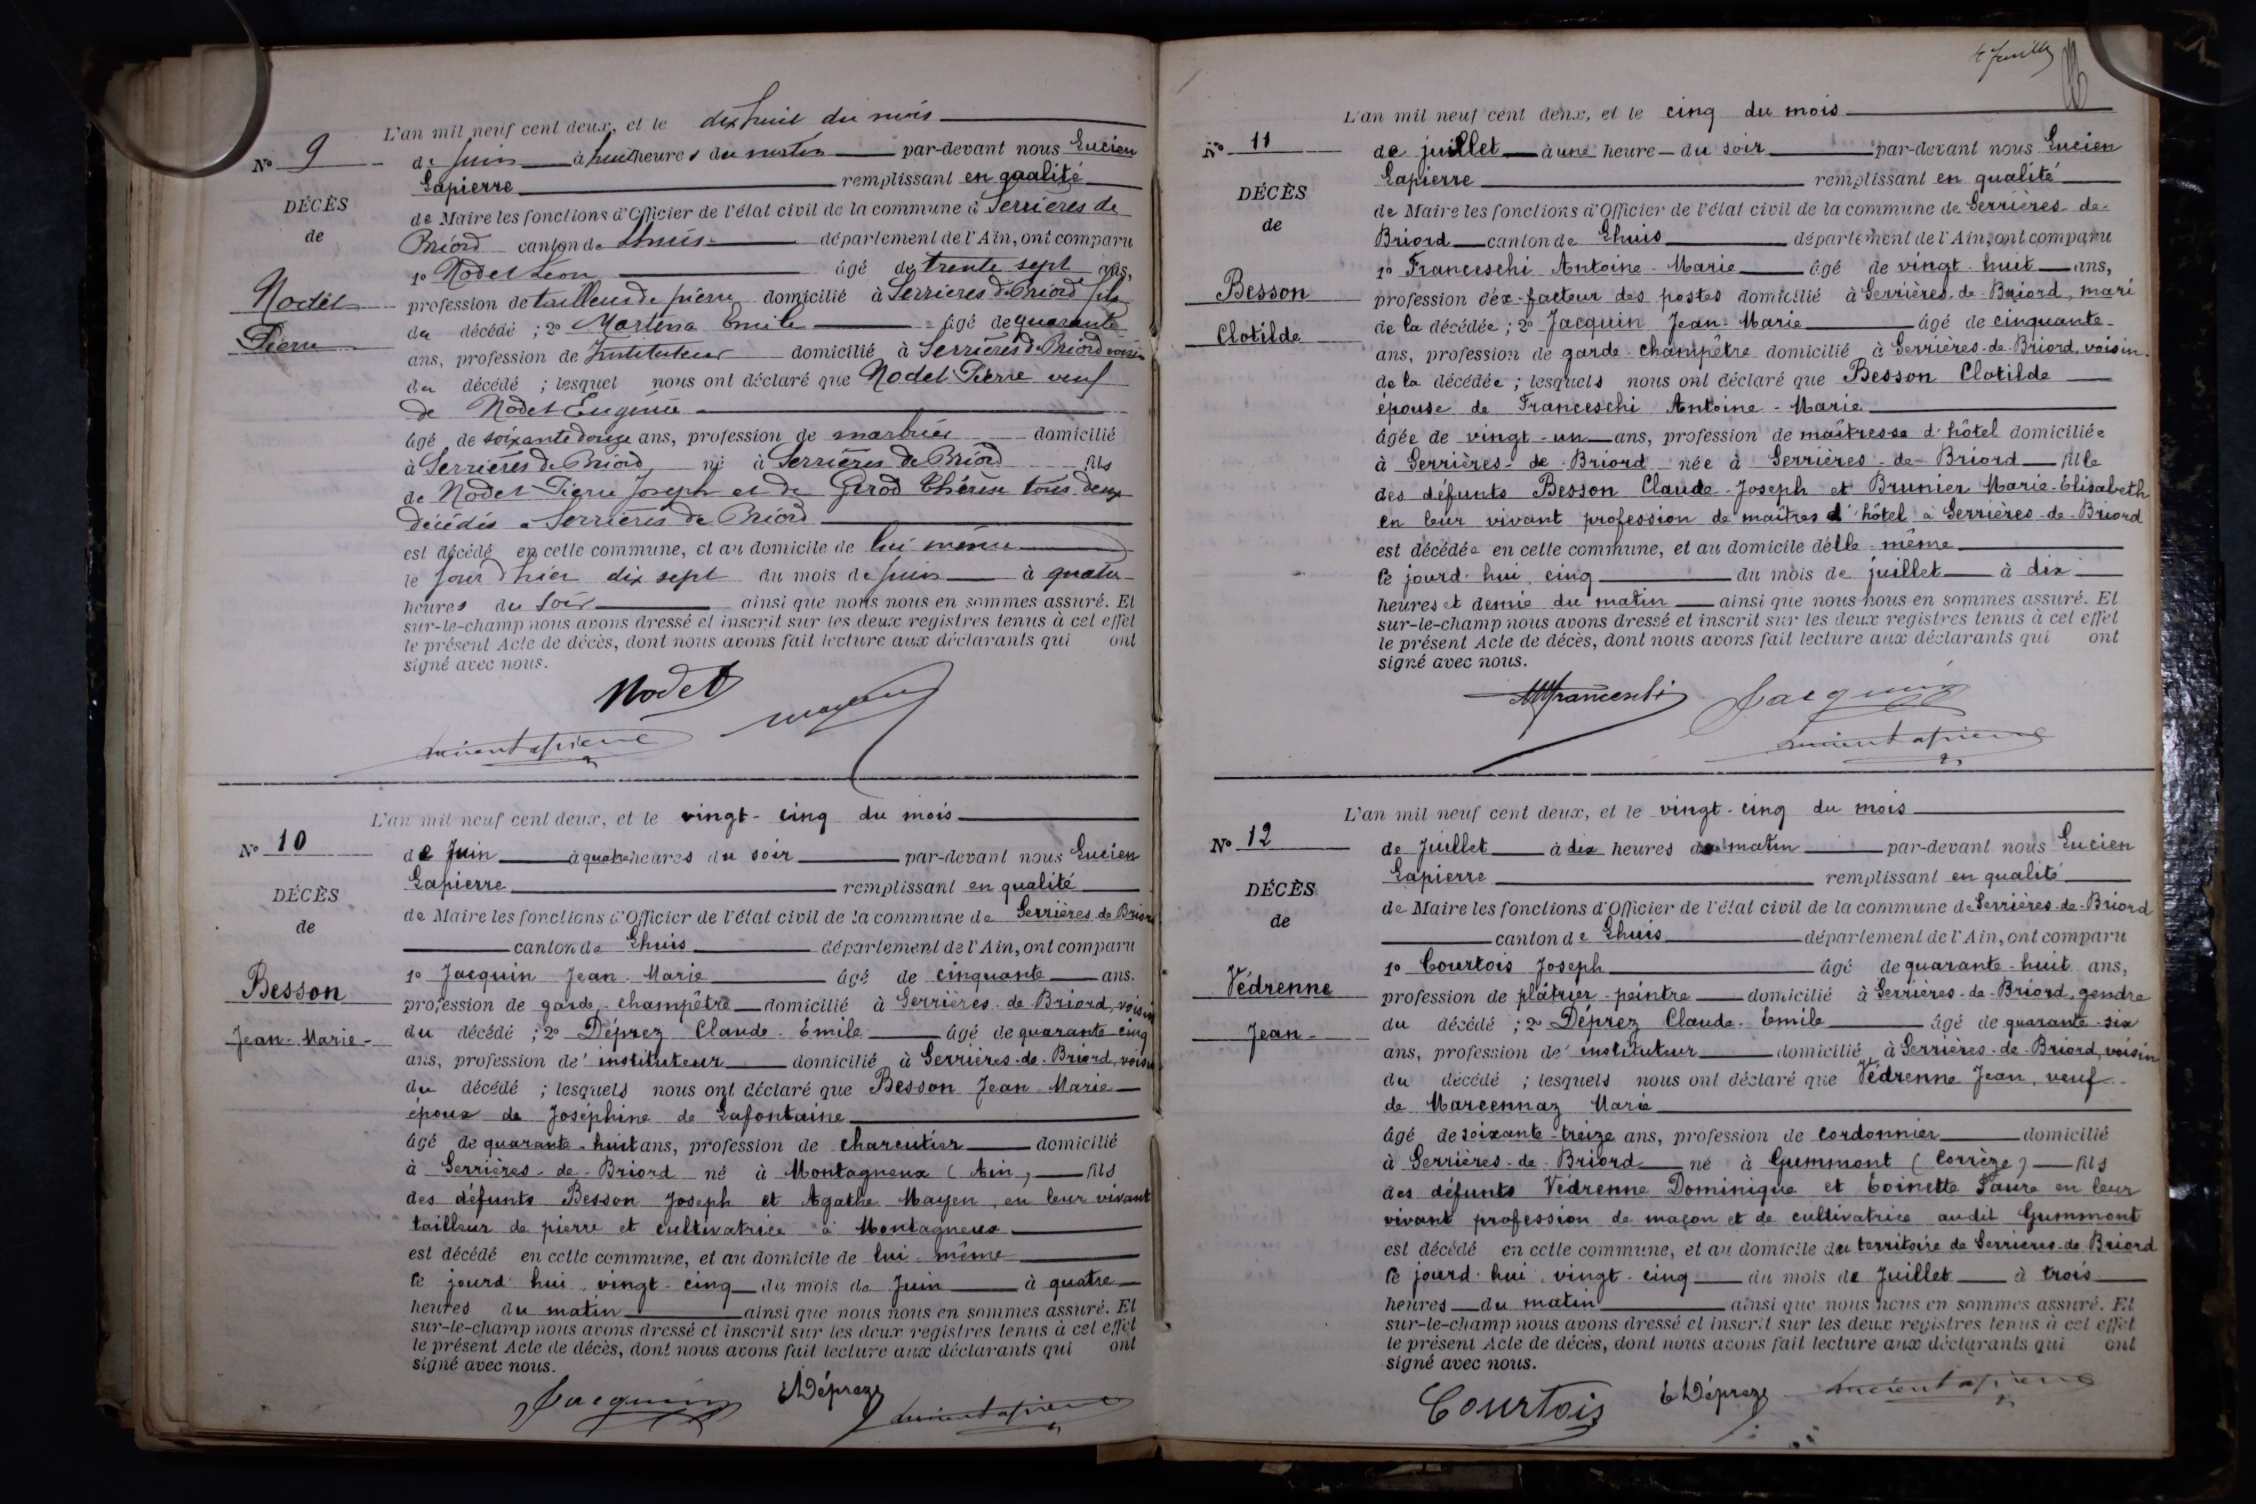 L'an mil neuf cent deux, et le dix huit du mois
N° 9
de Juin à huit heures du matin par-devant nous Lucien
Lapierre remplissant en qualité
DÉCÈS
de Maire les fonctions d'Officier de l'état civil de la commune d Serrières de
de
Briord canton de Lhuis département de l'Ain, ont comparu
1° Nodet Léon âgé de trente sept ans,
Nodet
profession de tailleur de pierre domicilié à Serrières de Briord fils
du décédé ; 2° Emile âgé de quarante
Pierre
ans, profession de Instituteur domicilié à Serrières de Briord voisin
du décédé ; lesquel nous ont déclaré que Nodet Pierre veuf
de Nodet Eugénie
âgé de soixante douze ans, profession de marbrier domicilié
à Serrières de Briord né à Serrières de Briord fils
de Nodet Pierre Joseph et de Girod Thérèse tous deux
décédés à Serrières de Briord
est décédé en cette commune, et au domicile de lui même
le jour d'hier dix sept du mois de Juin à quatre
heures du soir ainsi que nous nous en sommes assuré. Et
sur-le-champ nous avons dressé et inscrit sur les deux registres tenus à cet effet
le présent Acte de décès, dont nous avons fait lecture aux déclarants qui ont
signé avec nous.
Nodet
Lucien Lapierre
L'an mil neuf cent deux, et le vingt-cinq du mois
N° 10
de Juin à quatre heures du soir par-devant nous Lucien
Lapierre remplissant en qualité
DÉCÈS
de Maire les fonctions d'Officier de l'état civil de la commune de Serrières de Briord
de
canton de Lhuis département de l'Ain, ont comparu
1° Jacquin Jean-Marie âgé de cinquante ans.
Besson
profession de garde-champêtre domicilié à Serrières-de-Briord, voisin
du décédé ; 2° Déprez Claude-Emile âgé de quarante cinq
Jean-Marie-
ans, profession de instituteur domicilié à Serrières-de-Briord, voisin
du décédé ; lesquels nous ont déclaré que Besson Jean-Marie
époux de Joséphine de Lafontaine
âgé de quarante-huit ans, profession de charcutier domicilié
à Serrières-de-Briord né à Montagneux (Ain) fils
des défunts Besson Joseph et Agathe Mayen, en leur vivant
tailleur de pierre et cultivatrice à Montagneux
est décédé en cette commune, et au domicile de lui-même
le jourd'hui, vingt-cinq du mois de Juin à quatre
heures du matin ainsi que nous nous en sommes assuré. Et
sur-le-champ nous avons dressé et inscrit sur les deux registres tenus à cet effet
le présent Acte de décès, dont nous avons fait lecture aux déclarants qui ont
signé avec nous.
Jacquin EDéprez Lucien Lapierre
L'an mil neuf cent deux, et le cinq du mois
N° 11
de juillet à une heure du soir par-devant nous Lucien
Lapierre remplissant en qualité
DÉCÈS
de Maire les fonctions d'Officier de l'état civil de la commune de Serrières-de-
de
Briord canton de Lhuis département de l'Ain, ont comparu
1° Franceschi Antoine-Marie âgé de vingt-huit ans,
Besson
profession d'ex-facteur des postes domicilié à Serrières-de-Briord, mari
de la décédée ; 2° Jacquin Jean-Marie âgé de cinquante-
Clotilde
ans, profession de garde-champêtre domicilié à Serrières-de-Briord, voisin.
de la décédée ; lesquels nous ont déclaré que Besson Clotilde
épouse de Franceschi Antoine-Marie
âgée de vingt-un ans, profession de maîtresse d'hôtel domiciliée
à Serrières-de-Briord née à Serrières-de-Briord fille
des défunts Besson Claude-Joseph et Brunier Marie-Elisabeth
en leur vivant profession de maîtres d'hôtel à Serrières-de-Briord
est décédée en cette commune, et au domicile d'elle-même
le jourd'hui, cinq du mois de juillet à dix
heures et demie du matin ainsi que nous nous en sommes assuré. Et
sur-le-champ nous avons dressé et inscrit sur les deux registres tenus à cet effet
le présent Acte de décès, dont nous avons fait lecture aux déclarants qui ont
signé avec nous.
Franceschi Jacquin
Lucien Lapierre
L'an mil neuf cent deux, et le vingt-cinq du mois
N° 12
de Juillet à dix heures du matin par-devant nous Lucien
Lapierre remplissant en qualité
DÉCÈS
de Maire les fonctions d'Officier de l'état civil de la commune de Serrières-de-Briord
de
canton de Lhuis département de l'Ain, ont comparu
1° Courtois Joseph âgé de quarante-huit ans,
Védrenne
profession de plâtrier-peintre domicilié à Serrières-de-Briord, gendre
du décédé ; 2° Déprez Claude-Emile âgé de quarante-six
Jean-
ans, profession de instituteur domicilié à Serrières-de-Briord, voisin
du décédé ; lesquels nous ont déclaré que Védrenne Jean, veuf
de Marcennaz Marie
âgé de soixante-treize ans, profession de cordonnier domicilié
à Serrières-de-Briord né à Gummont (Corrèze) fils
des défunts Védrenne Dominique et Toinette Faure en leur
vivant profession de maçon et de cultivatrice audit Gummont
est décédé en cette commune, et au domicile du territoire de Serrières-de-Briord
le jourd'hui, vingt-cinq du mois de Juillet à trois
heures du matin ainsi que nous nous en sommes assuré. Et
sur-le-champ nous avons dressé et inscrit sur les deux registres tenus à cet effet
le présent Acte de décès, dont nous avons fait lecture aux déclarants qui ont
signé avec nous.
Courtois EDéprez Lucien Lapierre